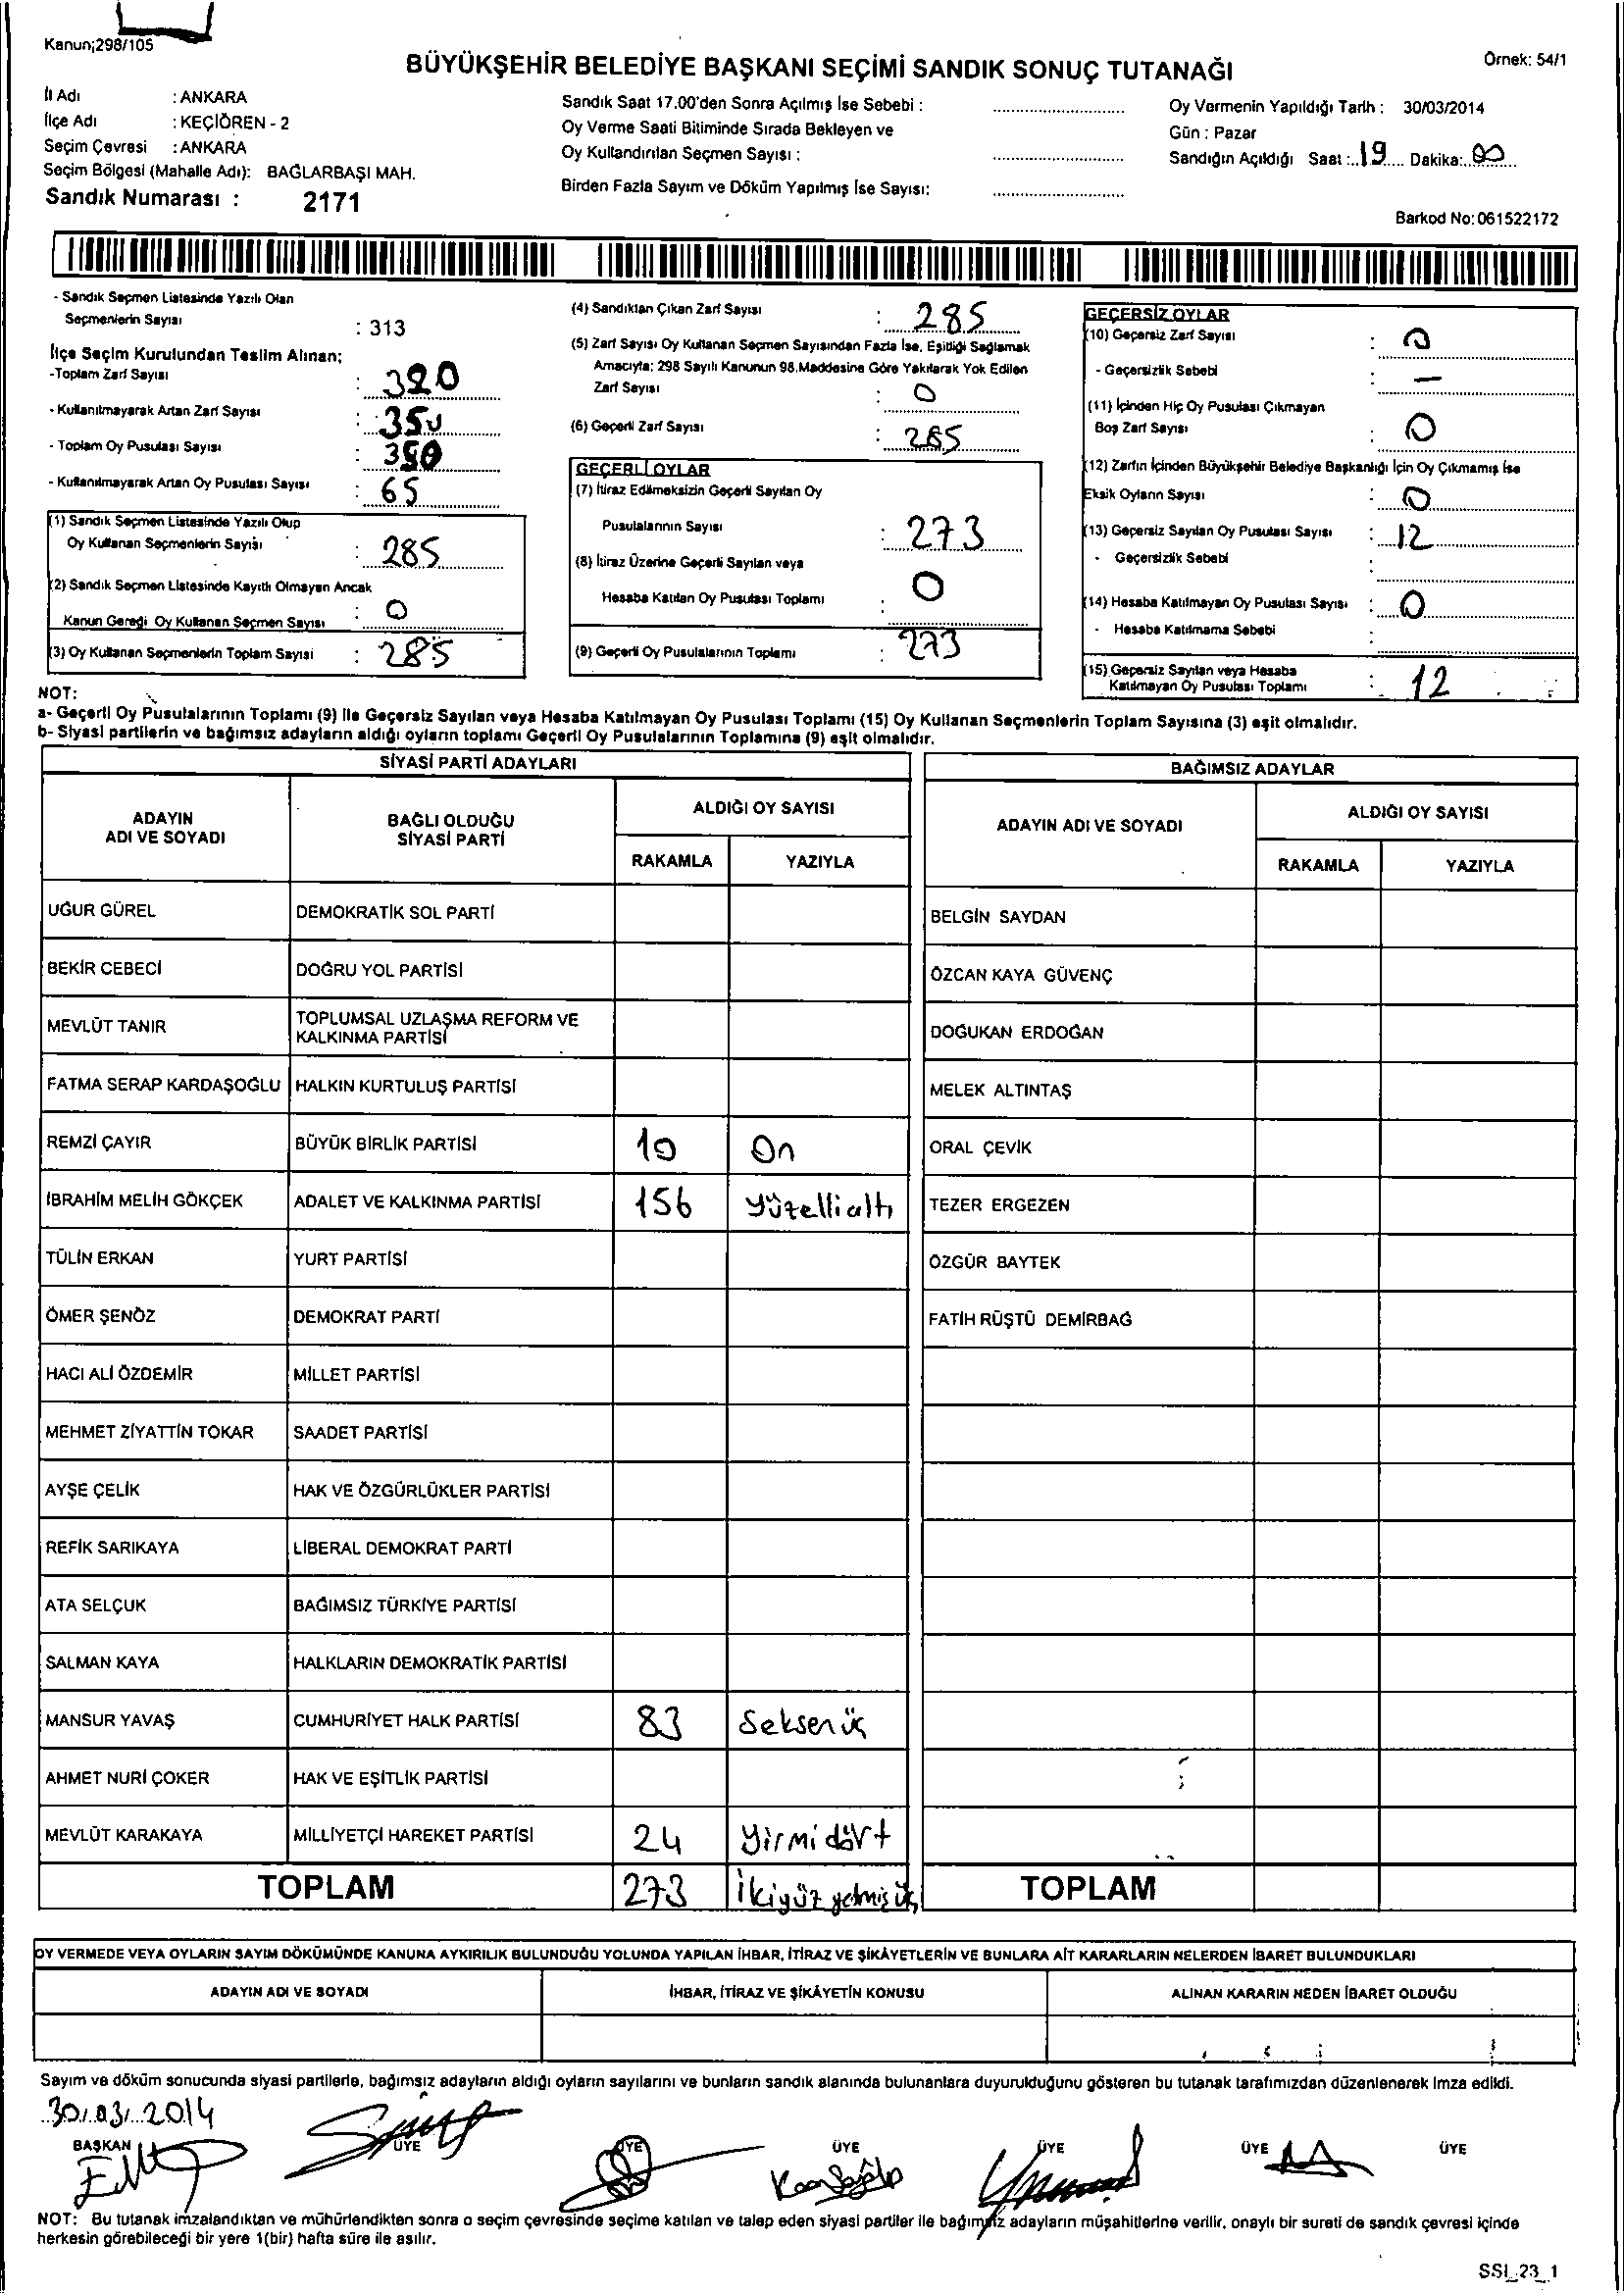 Kanun;298/105
BÜYÜKŞEHİR BELEDİYE BAŞKANI SEÇİMİ SANDIK SONUÇ TUTANAĞI
Örnek: 54/1
İl Adı : ANKARA
İlçe Adı : KEÇİÖREN - 2
Seçim Çevresi : ANKARA
Seçim Bölgesi (Mahalle Adı): BAĞLARBAŞI MAH.
Sandık Numarası : 2171
Sandık Saat 17.00'den Sonra Açılmış İse Sebebi :
Oy Verme Saati Bitiminde Sırada Bekleyen ve
Oy Kullandırılan Seçmen Sayısı :
Birden Fazla Sayım ve Döküm Yapılmış İse Sayısı:
Oy Vermenin Yapıldığı Tarih : 30/03/2014
Gün : Pazar
Sandığın Açıldığı Saat : 19 Dakika: 00
Barkod No: 061522172
- Sandık Seçmen Listesinde Yazılı Olan
Seçmenlerin Sayısı : 313
İlçe Seçim Kurulundan Teslim Alınan;
-Toplam Zarf Sayısı : 320
- Kullanılmayarak Artan Zarf Sayısı : 350
- Toplam Oy Pusulası Sayısı : 350
- Kullanılmayarak Artan Oy Pusulası Sayısı : 65
(1) Sandık Seçmen Listesinde Yazılı Olup
Oy Kullanan Seçmenlerin Sayısı : 285
(2) Sandık Seçmen Listesinde Kayıtlı Olmayan Ancak
Kanun Gereği Oy Kullanan Seçmen Sayısı : 0
(3) Oy Kullanan Seçmenlerin Toplam Sayısı : 285
(4) Sandıktan Çıkan Zarf Sayısı : 285
(5) Zarf Sayısı Oy Kullanan Seçmen Sayısından Fazla İse, Eşitliği Sağlamak
Amacıyla; 298 Sayılı Kanunun 98.Maddesine Göre Yakılarak Yok Edilen
Zarf Sayısı : 0
(6) Geçerli Zarf Sayısı : 285
GEÇERLİ OYLAR
(7) İtiraz Edilmeksizin Geçerli Sayılan Oy
Pusulalarının Sayısı : 273
(8) İtiraz Üzerine Geçerli Sayılan veya
Hesaba Katılan Oy Pusulası Toplamı : 0
(9) Geçerli Oy Pusulalarının Toplamı : 273
GEÇERSİZ OYLAR
(10) Geçersiz Zarf Sayısı : 0
- Geçersizlik Sebebi : —
(11) İçinden Hiç Oy Pusulası Çıkmayan
Boş Zarf Sayısı : 0
(12) Zarfın İçinden Büyükşehir Belediye Başkanlığı İçin Oy Çıkmamış İse
Eksik Oyların Sayısı : 0
(13) Geçersiz Sayılan Oy Pusulası Sayısı : 12
- Geçersizlik Sebebi :
(14) Hesaba Katılmayan Oy Pusulası Sayısı : 0
- Hesaba Katılmama Sebebi :
(15) Geçersiz Sayılan veya Hesaba
Katılmayan Oy Pusulası Toplamı : 12
NOT:
a- Geçerli Oy Pusulalarının Toplamı (9) İle Geçersiz Sayılan veya Hesaba Katılmayan Oy Pusulası Toplamı (15) Oy Kullanan Seçmenlerin Toplam Sayısına (3) eşit olmalıdır.
b- Siyasi partilerin ve bağımsız adayların aldığı oyların toplamı Geçerli Oy Pusulalarının Toplamına (9) eşit olmalıdır.
SİYASİ PARTİ ADAYLARI
BAĞIMSIZ ADAYLAR
ADAYIN
ADI VE SOYADI
BAĞLI OLDUĞU
SİYASİ PARTİ
ALDIĞI OY SAYISI
RAKAMLA YAZIYLA
ADAYIN ADI VE SOYADI
ALDIĞI OY SAYISI
RAKAMLA YAZIYLA
UĞUR GÜREL DEMOKRATİK SOL PARTİ BELGİN SAYDAN
BEKİR CEBECİ DOĞRU YOL PARTİSİ ÖZCAN KAYA GÜVENÇ
MEVLÜT TANIR TOPLUMSAL UZLAŞMA REFORM VE
KALKINMA PARTİSİ DOĞUKAN ERDOĞAN
FATMA SERAP KARDAŞOĞLU HALKIN KURTULUŞ PARTİSİ MELEK ALTINTAŞ
REMZİ ÇAYIR BÜYÜK BİRLİK PARTİSİ 10 On ORAL ÇEVİK
İBRAHİM MELİH GÖKÇEK ADALET VE KALKINMA PARTİSİ 156 Yüzellialtı TEZER ERGEZEN
TÜLİN ERKAN YURT PARTİSİ ÖZGÜR BAYTEK
ÖMER ŞENÖZ DEMOKRAT PARTİ FATİH RÜŞTÜ DEMİRBAĞ
HACI ALİ ÖZDEMİR MİLLET PARTİSİ
MEHMET ZİYATTİN TOKAR SAADET PARTİSİ
AYŞE ÇELİK HAK VE ÖZGÜRLÜKLER PARTİSİ
REFİK SARIKAYA LİBERAL DEMOKRAT PARTİ
ATA SELÇUK BAĞIMSIZ TÜRKİYE PARTİSİ
SALMAN KAYA HALKLARIN DEMOKRATİK PARTİSİ
MANSUR YAVAŞ CUMHURİYET HALK PARTİSİ 83 Seksenüç
AHMET NURİ ÇOKER HAK VE EŞİTLİK PARTİSİ
MEVLÜT KARAKAYA MİLLİYETÇİ HAREKET PARTİSİ 24 Yirmidört
TOPLAM 273 İkiyüz yetmişüç TOPLAM
OY VERMEDE VEYA OYLARIN SAYIM DÖKÜMÜNDE KANUNA AYKIRILIK BULUNDUĞU YOLUNDA YAPILAN İHBAR, İTİRAZ VE ŞİKÂYETLERİN VE BUNLARA AİT KARARLARIN NELERDEN İBARET BULUNDUKLARI
ADAYIN ADI VE SOYADI İHBAR, İTİRAZ VE ŞİKÂYETİN KONUSU ALINAN KARARIN NEDEN İBARET OLDUĞU
Sayım ve döküm sonucunda siyasi partilerle, bağımsız adayların aldığı oyların sayılarını ve bunların sandık alanında bulunanlara duyurulduğunu gösteren bu tutanak tarafımızdan düzenlenerek imza edildi.
30/03/2014
BAŞKAN ÜYE ÜYE ÜYE ÜYE ÜYE ÜYE
NOT: Bu tutanak imzalandıktan ve mühürlendikten sonra o seçim çevresinde seçime katılan ve talep eden siyasi partiler ile bağımsız adayların müşahitlerine verilir, onaylı bir sureti de sandık çevresi içinde
herkesin görebileceği bir yere 1(bir) hafta süre ile asılır.
SSI_23_1